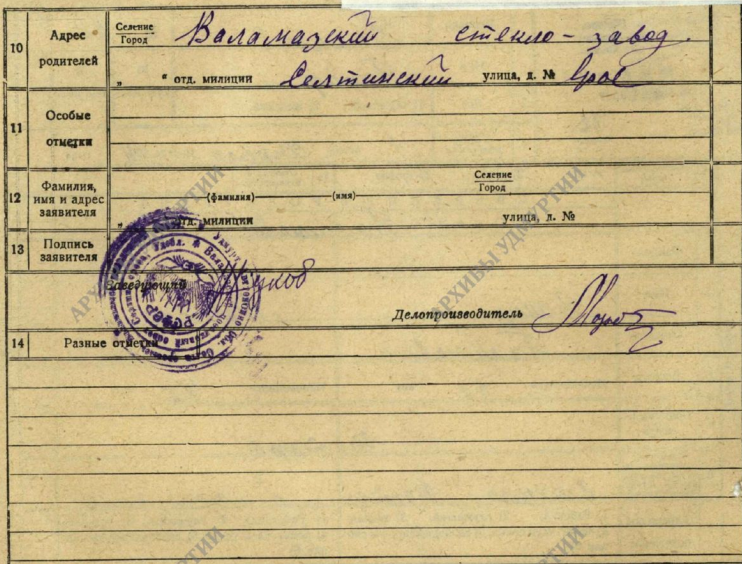 10 Адрес родителей Селение Город Валамазский стекло-завод.
" " отд. милиции Селтинский улица, д. №
11 Особые отметки
12 Фамилия, имя и адрес заявителя (фамилия) (имя) Селение Город
отд. милиции улица, д. №
13 Подпись заявителя
Заведующий Жуков
Делопроизводитель
14 Разные отметки
РСФСР
АРХИВЫ УДМУРТИИ